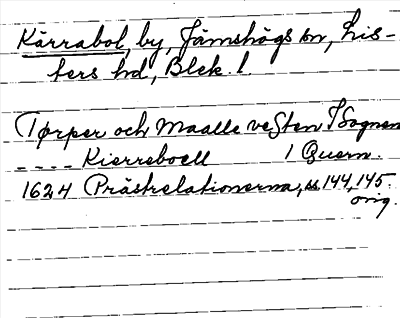 Kärrabol, by, Jämshögs sn, Lis-
ters hd, Blek. l
Tørper och Maalle vesten I Sognen
---- Kierreboell 1 Quern.
1624 Prästrelationerna, ss. 144, 145.
orig.